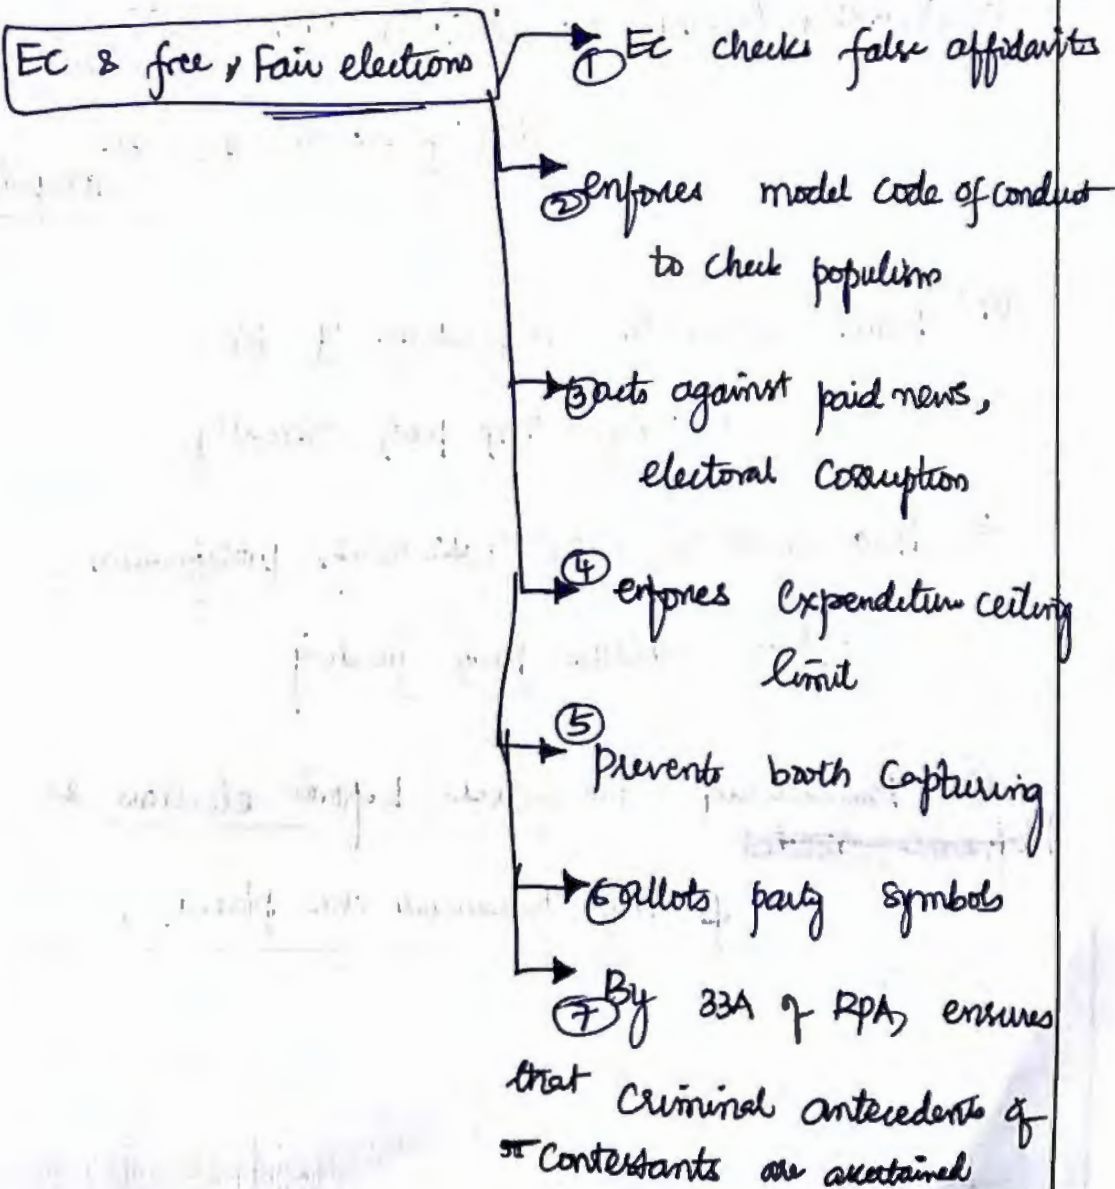 EC & free, Fair elections
① EC checks false affidavits
② enfores model code of conduct
to check populism
③ acts against paid news,
electoral corruption
④ enfores expenditure ceiling
limit
⑤ prevents booth capturing
⑥ allots party symbols
⑦ By 33A of RPA, ensures
that criminal antecedents of
contestants are ascertained